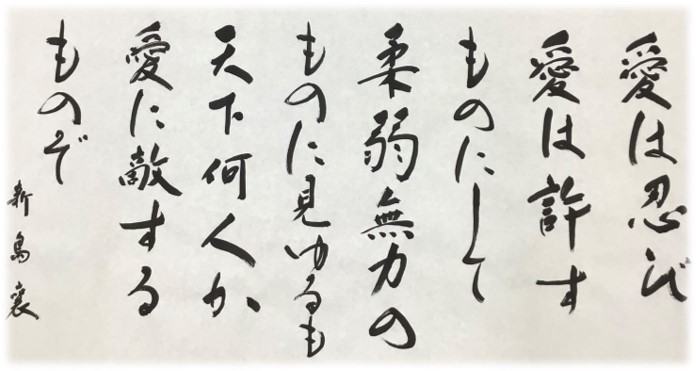 愛は忍び
愛は許す
ものにして
柔弱無力の
ものに見ゆるも
天下何人か
愛に敵する
ものぞ
新島襄